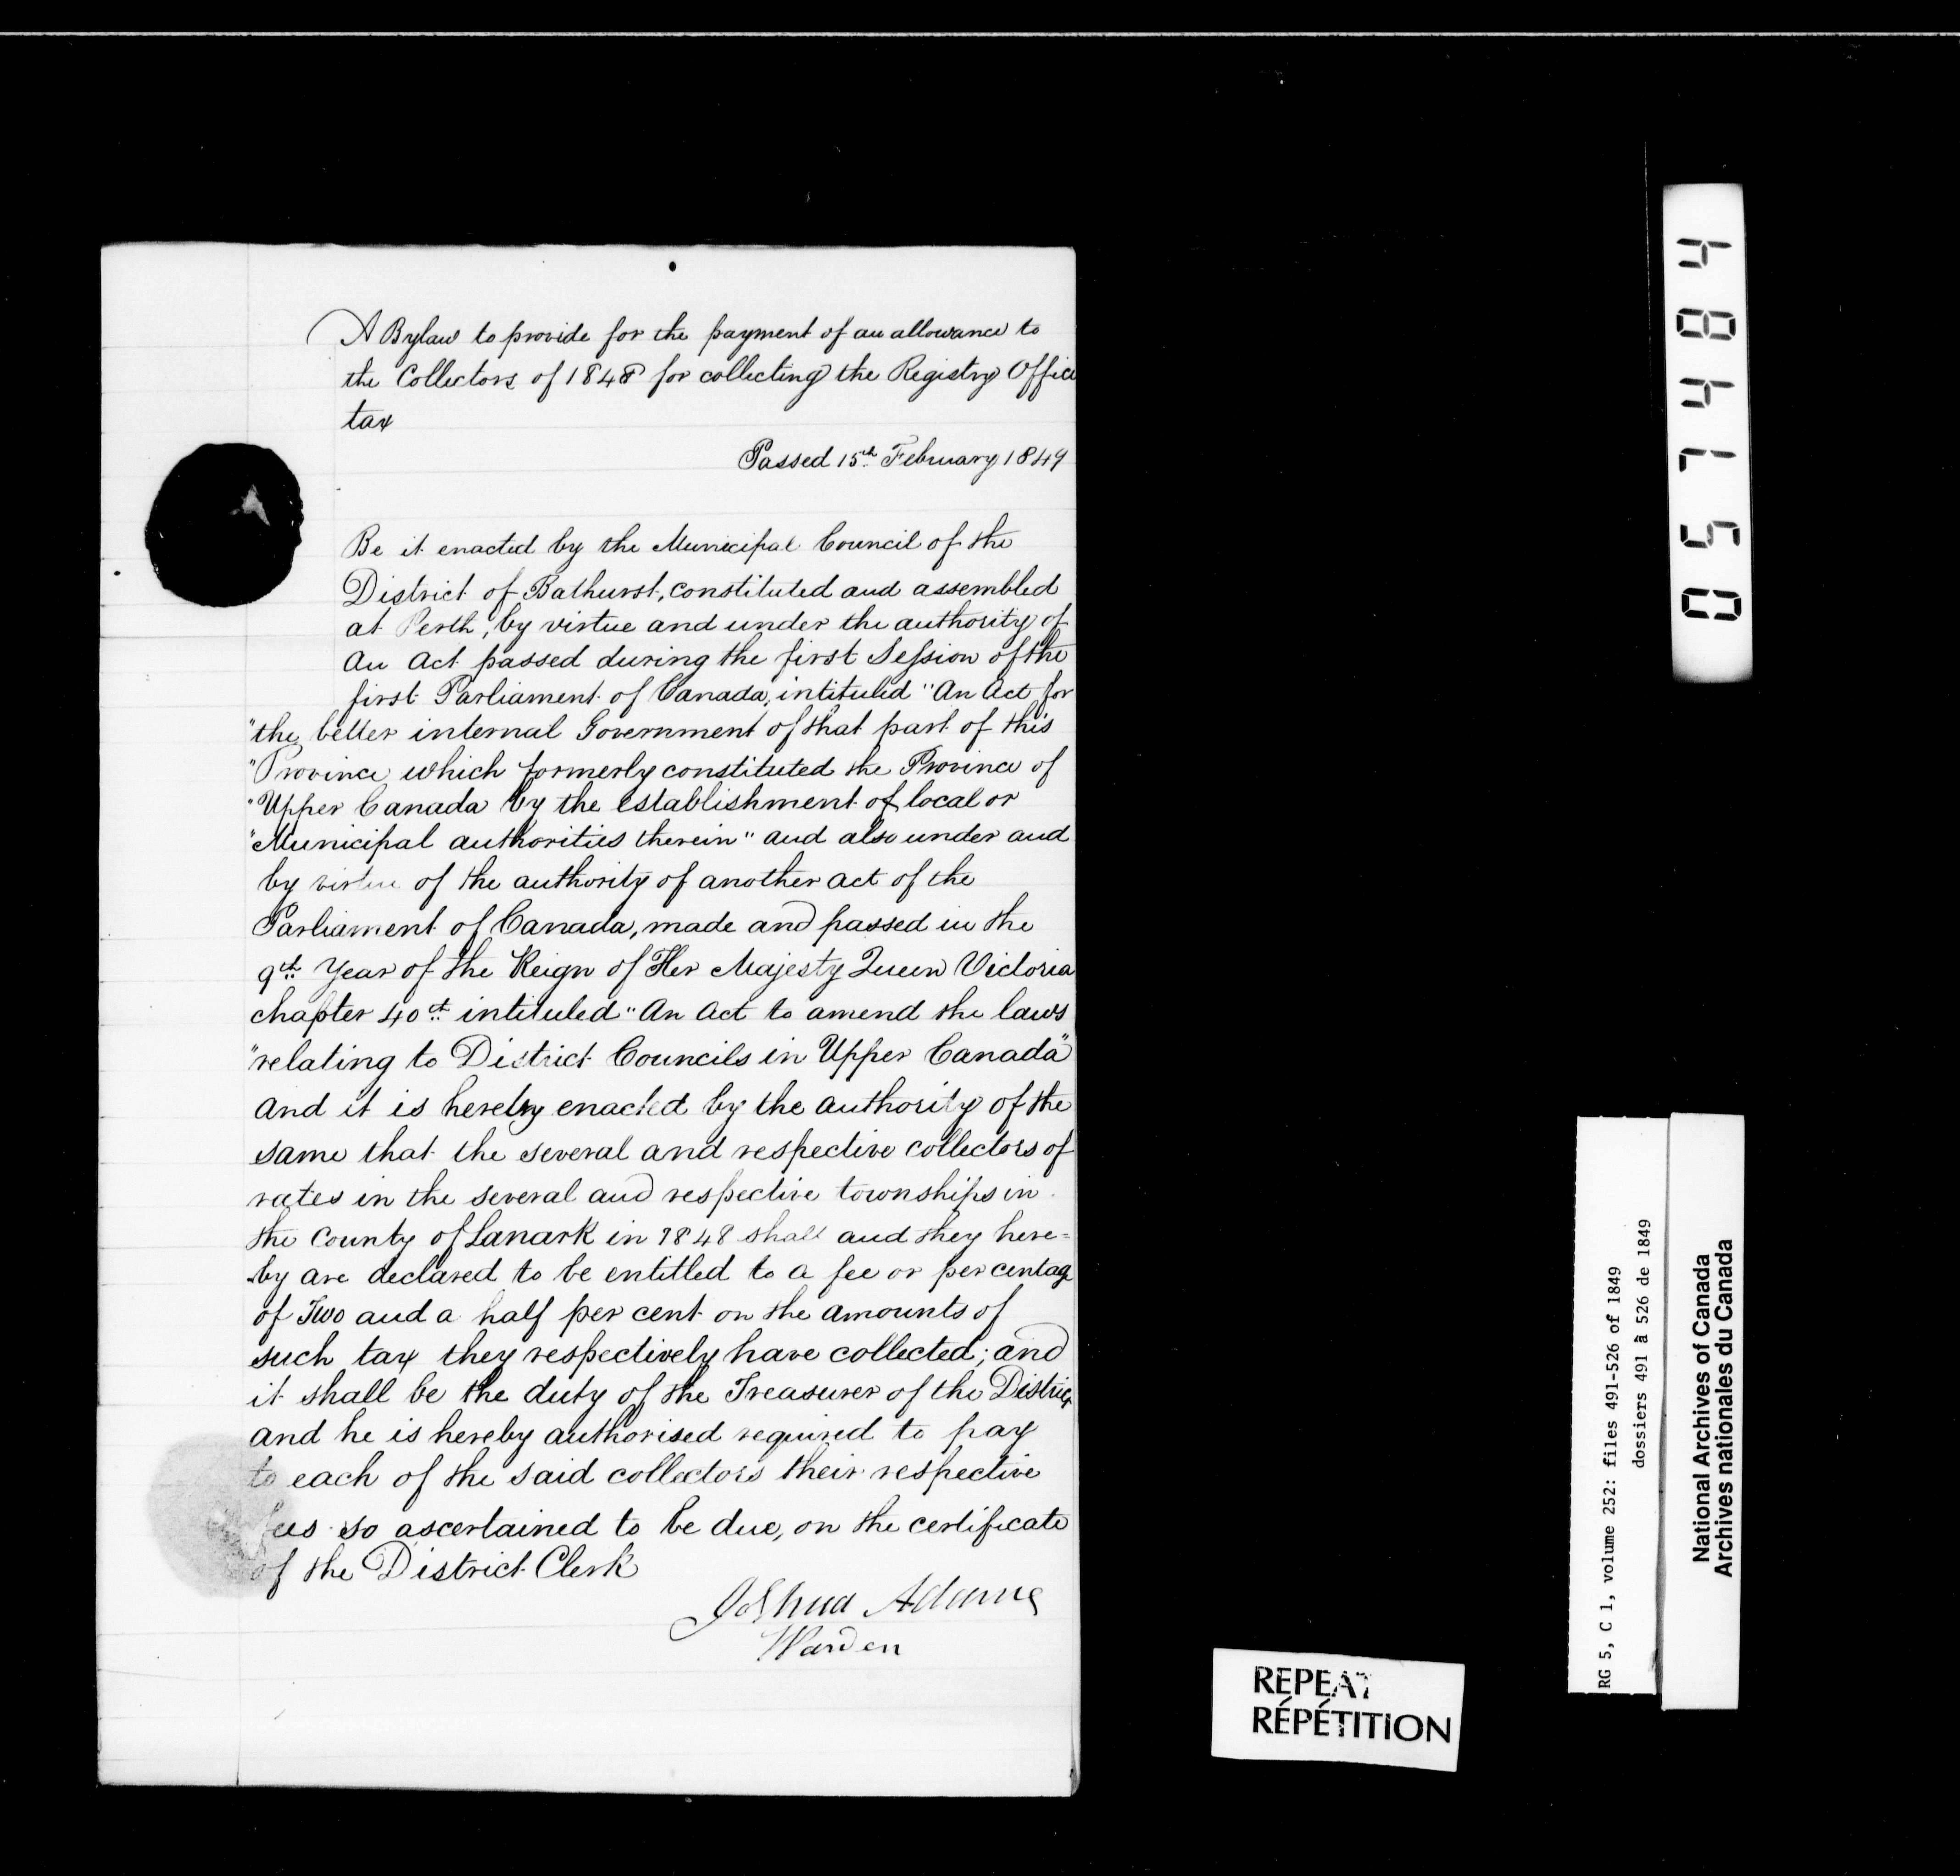 A Bylaw to provide for the payment of an allowance to
the Collectors of 1848 for collecting the Registry Office
tax
Passed 15th February 1849
Be it enacted by the Municipal Council of the
District of Bathurst, constituted and assembled
at Perth, by virtue and under the authority of
an Act passed during the first Session of the
first Parliament of Canada, intituled "An Act for
"the better internal Government of that part of this
"Province which formerly constituted the Province of
"Upper Canada by the establishment of local or
"Municipal authorities therein" and also under and
by virtue of the authority of another act of the
Parliament of Canada, made and passed in the
9th Year of the Reign of Her Majesty Queen Victoria
chapter 40th intituled "An Act to amend the laws
"relating to District Councils in Upper Canada"
and it is hereby enacted by the authority of the
same that the several and respective collectors of
rates in the several and respective townships in
the County of Lanark in 1848 shall and they here=
by are declared to be entitled to a fee or percentage
of Two and a half per cent on the amounts of
such tax they respectively have collected; and
it shall be the duty of the Treasurer of the District
and he is hereby authorised required to pay
to each of the said collectors their respective
fees so ascertained to be due, on the certificate
of the District Clerk
Joshua Adams
Warden
051484
RG 5, C 1, volume 252: files 491-526 of 1849
dossiers 491 à 526 de 1849
National Archives of Canada
Archives nationales du Canada
REPEAT
RÉPÉTITION